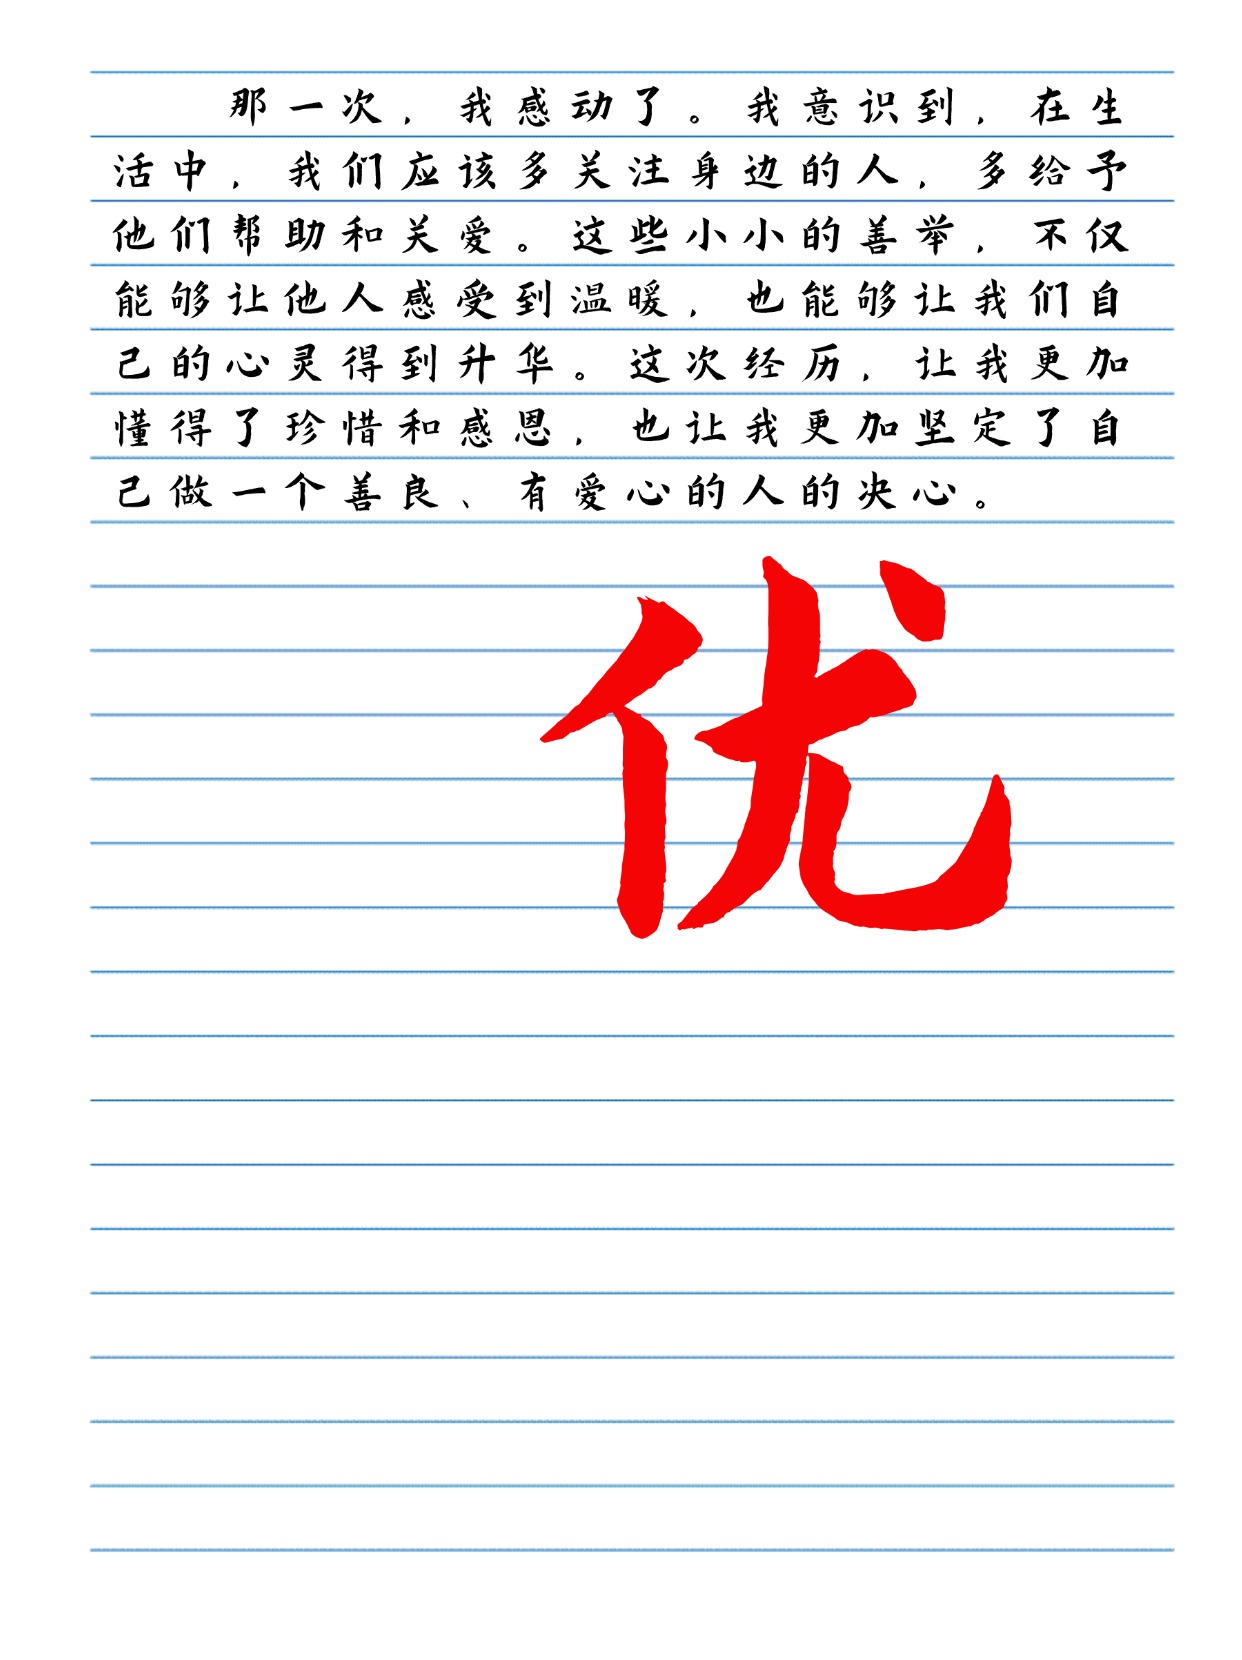 那一次，我感动了。我意识到，在生
活中，我们应该多关注身边的人，多给予
他们帮助和关爱。这些小小的善举，不仅
能够让他人感受到温暖，也能够让我们自
己的心灵得到升华。这次经历，让我更加
懂得了珍惜和感恩，也让我更加坚定了自
己做一个善良、有爱心的人的决心。
优